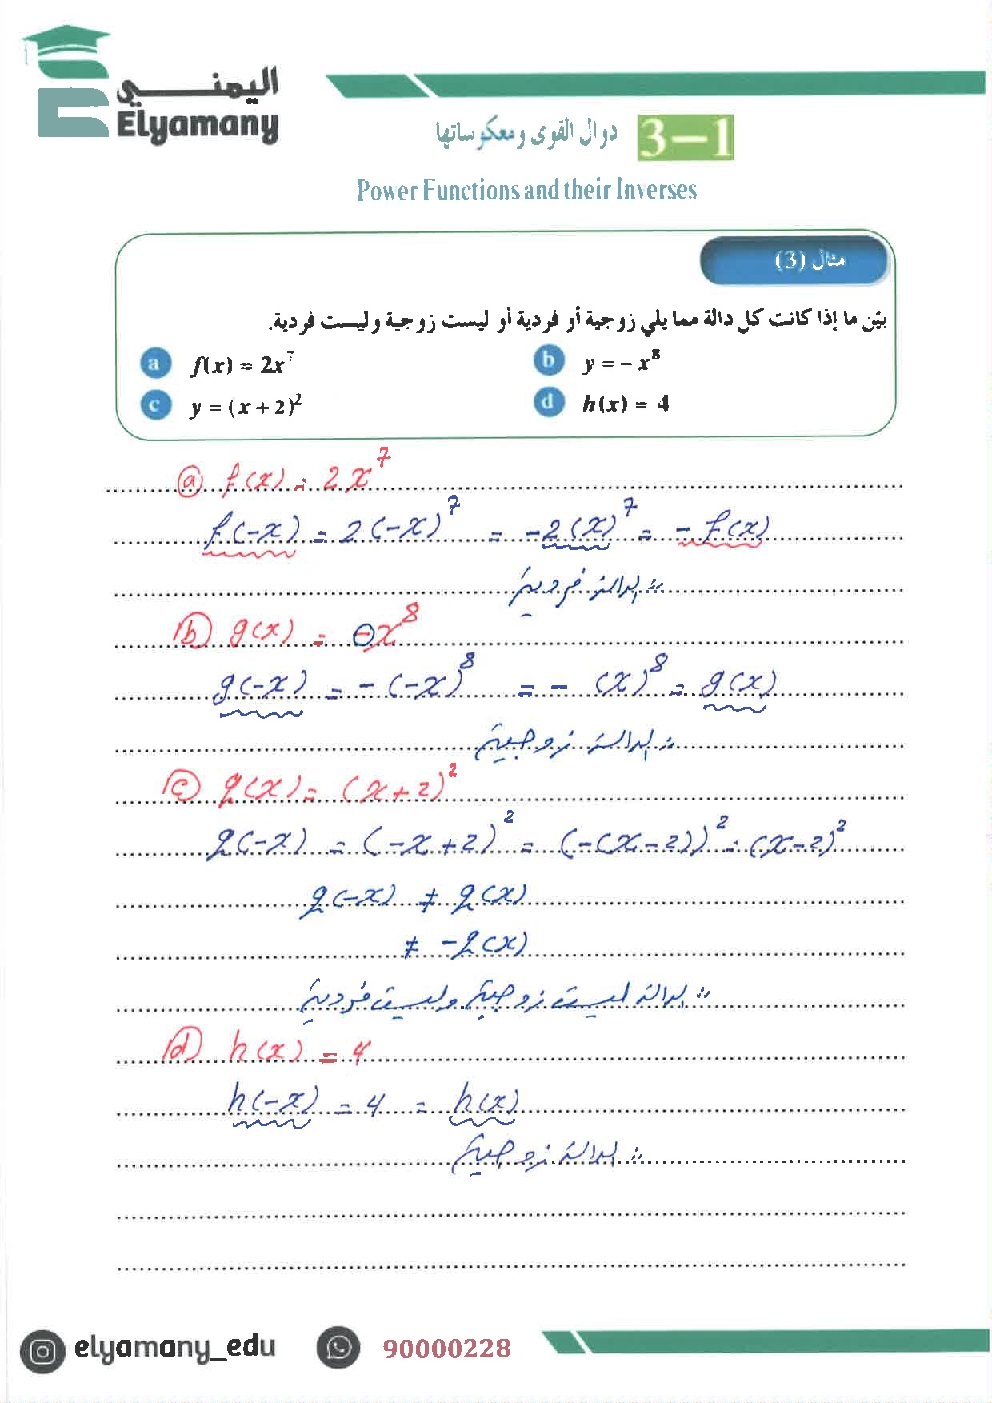 اليمني
Elyamany
3-1 دوال القوى ومعكوساتها
Power Functions and their Inverses
مثال (3)
بيّن ما إذا كانت كل دالة مما يلي زوجية أو فردية أو ليست زوجية وليست فردية.
a f(x) = 2x⁷ b y = – x⁸
c y = (x + 2)² d h(x) = 4
ⓐ f(x) = 2x⁷
f(-x) = 2(-x)⁷ = -2(x)⁷ = -f(x)
∴ الدالة فردية
ⓑ g(x) = -x⁸
g(-x) = -(-x)⁸ = -(x)⁸ = g(x)
∴ الدالة زوجية
ⓒ q(x) = (x+2)²
q(-x) = (-x+2)² = (-(x-2))² = (x-2)²
q(-x) ≠ q(x)
≠ -q(x)
∴ الدالة ليست زوجية وليست فردية
ⓓ h(x) = 4
h(-x) = 4 = h(x)
∴ الدالة زوجية
elyamany_edu 90000228